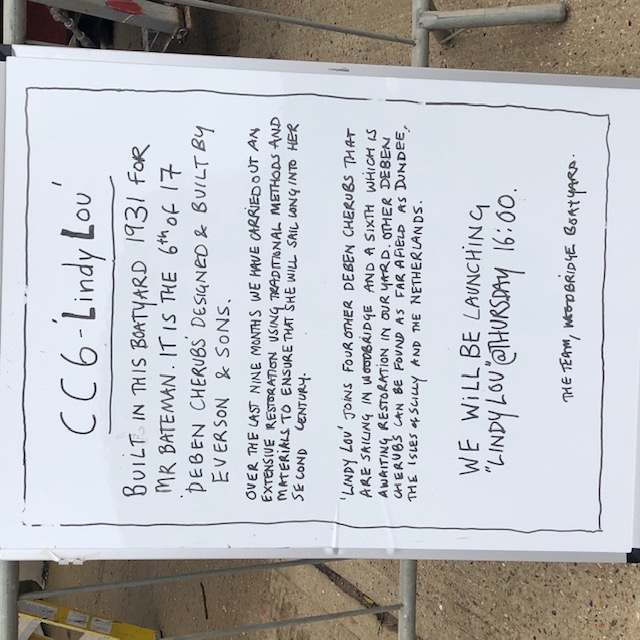 CC6 - 'Lindy Lou'
BUILT IN THIS BOATYARD 1931 FOR
MR BATEMAN. IT IS THE 6th OF 17
'DEBEN CHERUBS' DESIGNED & BUILT BY
EVERSON & SONS.
OVER THE LAST NINE MONTHS WE HAVE CARRIED OUT AN
EXTENSIVE RESTORATION USING TRADITIONAL METHODS AND
MATERIALS TO ENSURE THAT SHE WILL SAIL LONG INTO HER
SECOND CENTURY.
'LINDY LOU' JOINS FOUR OTHER DEBEN CHERUBS THAT
ARE SAILING IN WOODBRIDGE AND A SIXTH WHICH IS
AWAITING RESTORATION IN OUR YARD. OTHER DEBEN
CHERUBS CAN BE FOUND AS FAR AFIELD AS DUNDEE,
THE ISLES of SCILLY AND THE NETHERLANDS.
WE WILL BE LAUNCHING
"LINDY LOU" @ THURSDAY 16:00.
THE TEAM, WOODBRIDGE BOATYARD.